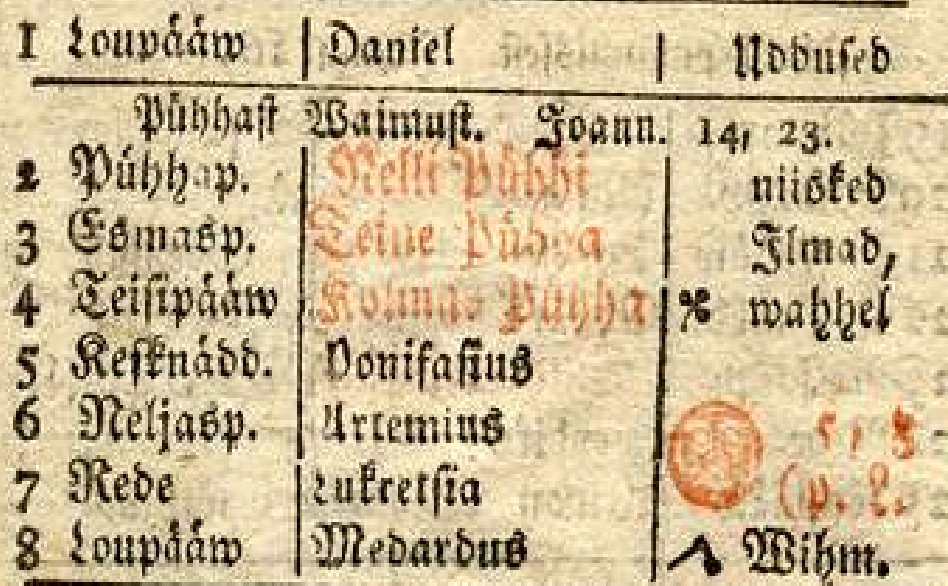 1 Loupääw Daniel Uddused
Pühhast Waimust. Joann. 14, 23.
2 Pühhap. Nelli Pühhi niisked
3 Esmasp. Teine Pühha Ilmad,
4 Teisipääw Kolmas Pühha wahhel
5 Kesknädd. Bonifasius
6 Neljasp. Artemius
7 Rede Lukretsia
8 Loupääw Medardus Wihm.